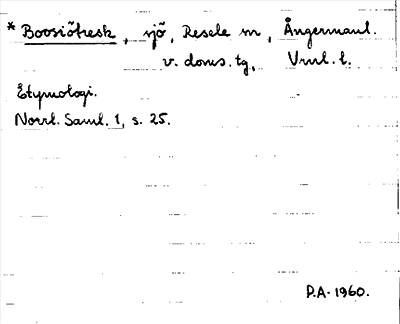 * Boosiötresk, sjö, Resele sn, Ångermanl.
v. doms. tg, Vml. l.
Etymologi.
Norrl. Saml. 1, s. 25.
P.A. 1960.